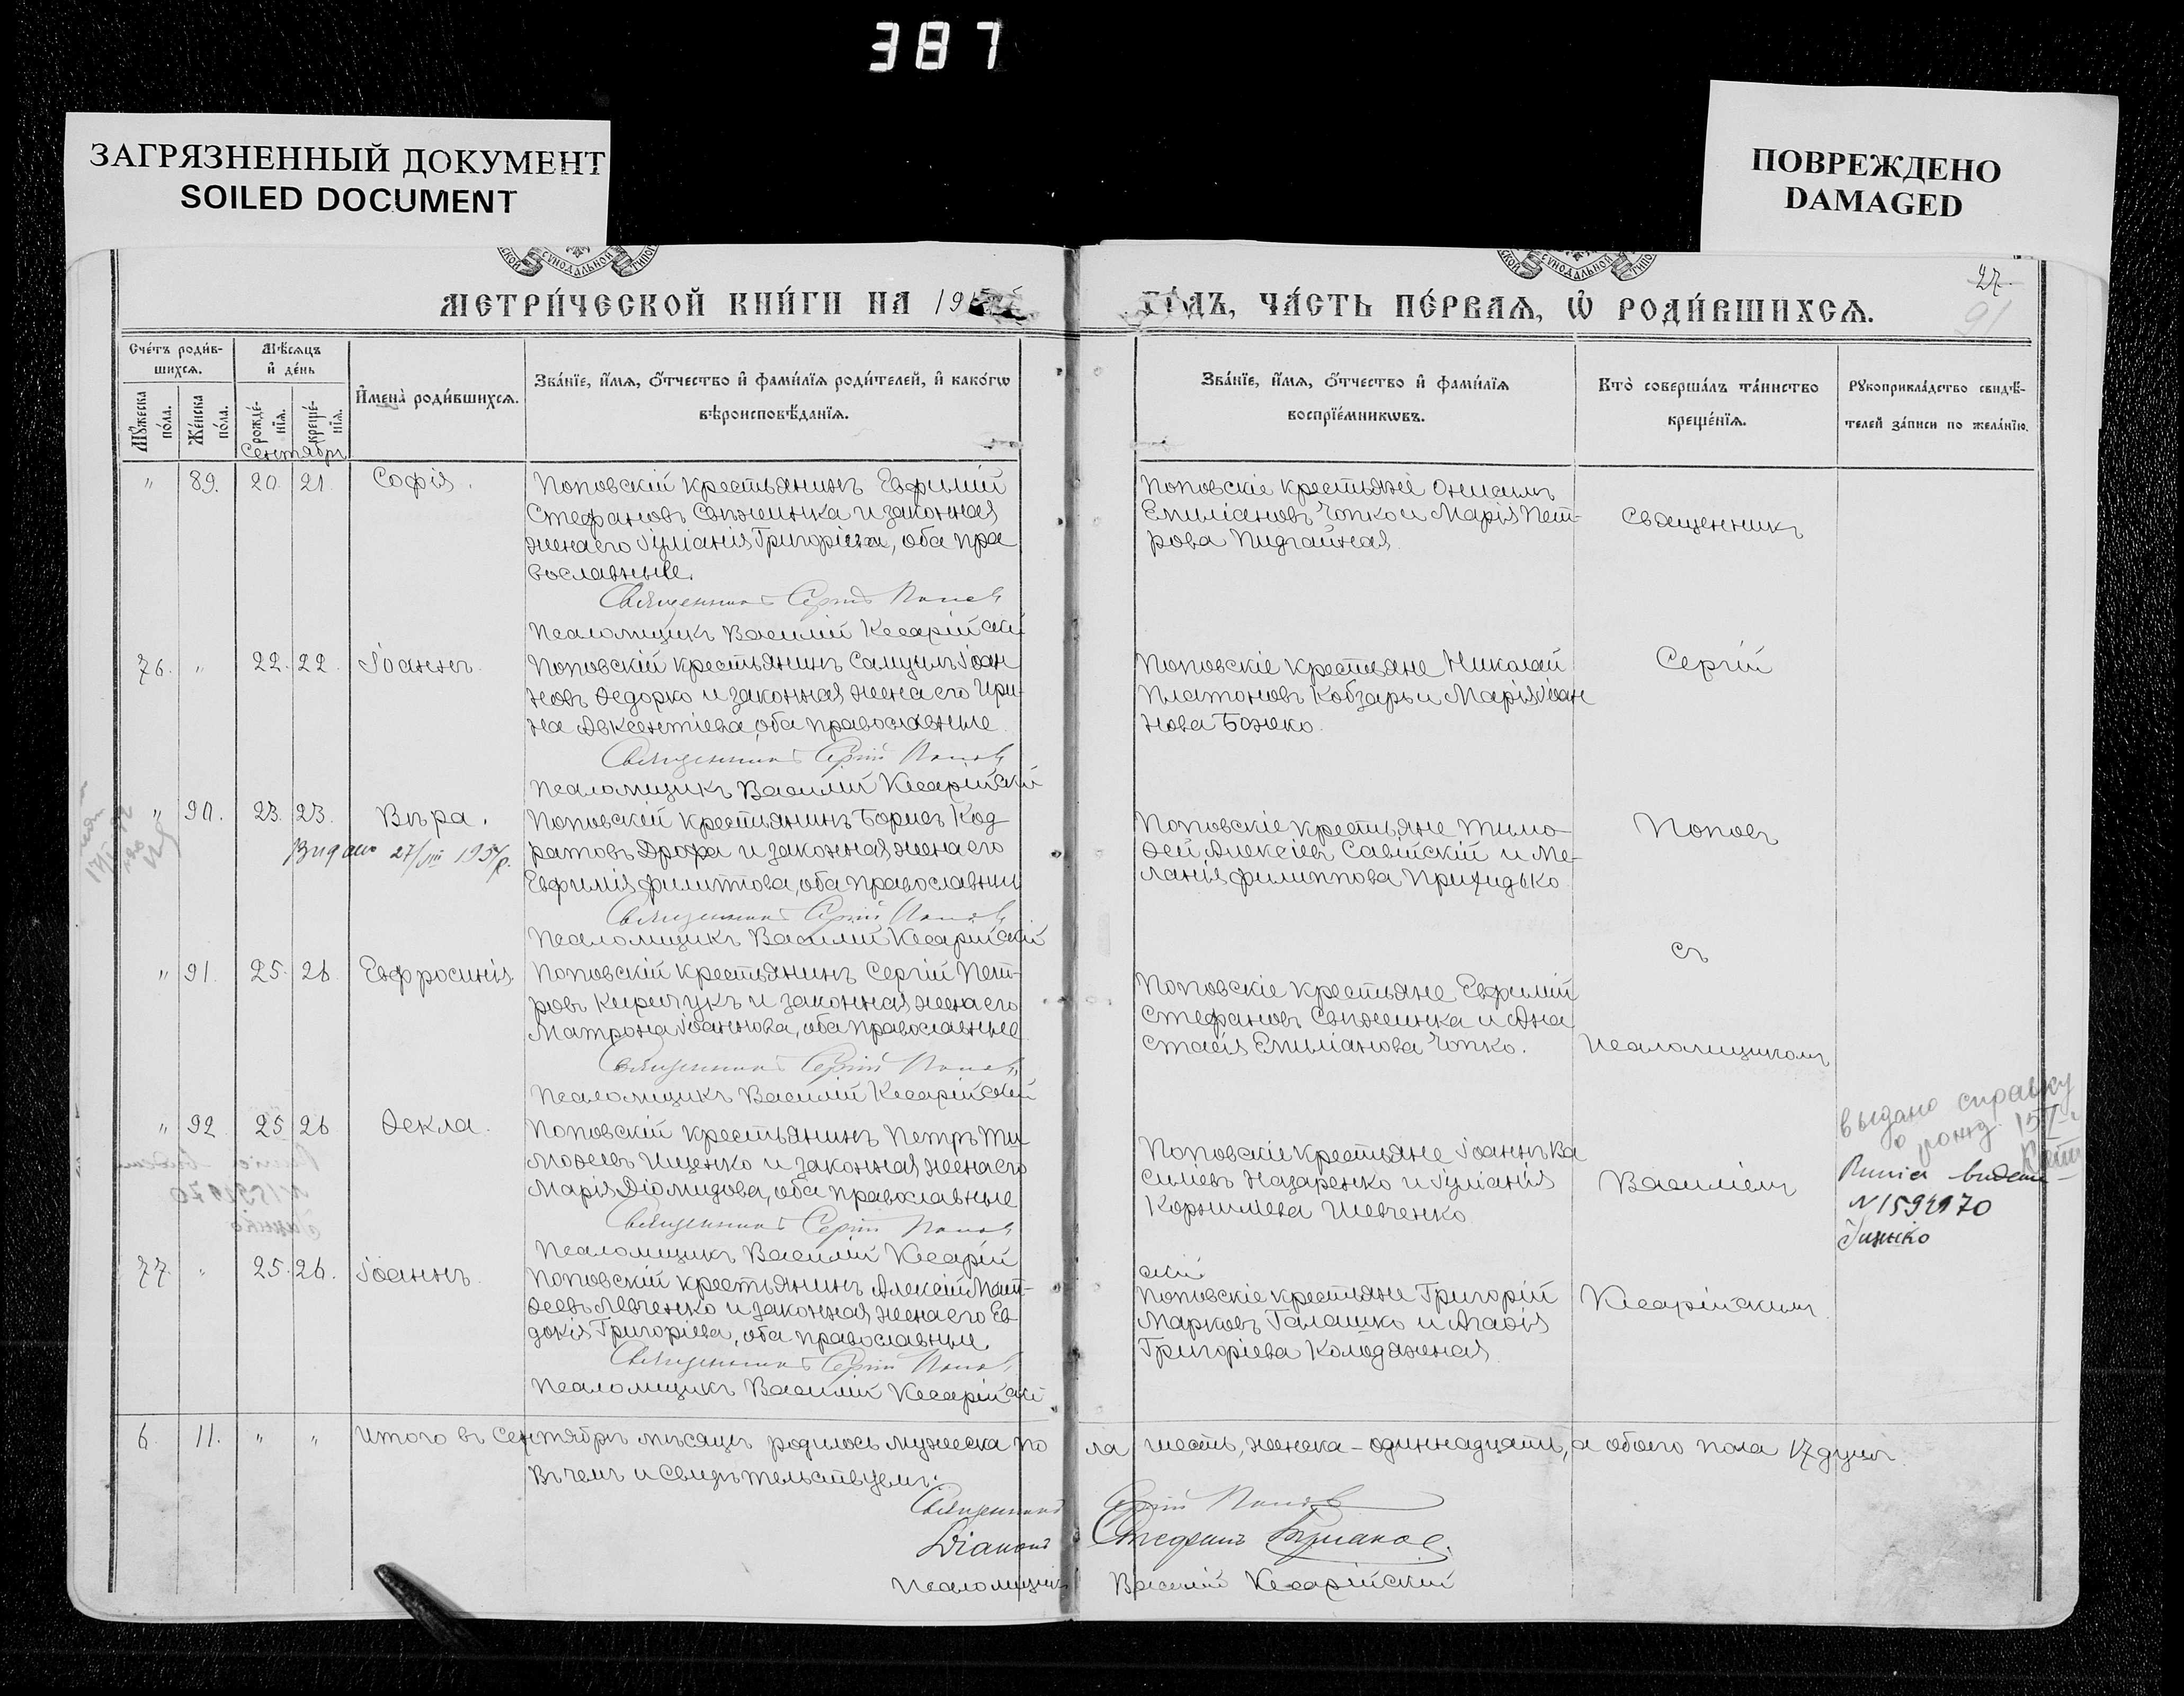 387
ЗАГРЯЗНЕННЫЙ ДОКУМЕНТ
SOILED DOCUMENT
ПОВРЕЖДЕНО
DAMAGED
СѴНОДАЛЬНОЙ
СѴНОДАЛЬНОЙ
27
91
МЕТРИ́ЧЕСКОЙ КНИ́ГИ НА 191
ГО́ДЪ, ЧА́СТЬ ПЕ́РВАѦ, Ѡ҆ РОДИ́ВШИХСѦ.
Сче́тъ роди́в-
шихсѧ.
Мѣ́сѧцъ
и҆ де́нь
Мꙋ́жеска по́ла.
Же́нска по́ла.
рожде́-
нїѧ.
креще́-
нїѧ.
Сентябрь
И҆мена̀ роди́вшихсѧ.
Зва́нїе, и҆́мѧ, ѻ҆́тчество и҆ фами́лїѧ роди́телей, и҆ како́гѡ
вѣроисповѣ́данїѧ.
Зва́нїе, и҆́мѧ, ѻ҆́тчество и҆ фами́лїѧ
воспрїе́мникѡвъ.
Кто̀ соверша́лъ та́инство
креще́нїѧ.
Рꙋкоприкла́дство свидѣ́-
телей за́писи по жела́нїю.
" 89. 20. 21. Софія.
Поповскій крестьянинъ Евфимій
Стефановъ Свѣжинка и законная
жена его Іуліанія Григоріева, оба пра
вославные.
Священникъ Сергій Поповъ
Псаломщикъ Василій Кесарійскій
Поповскіе крестьяне Онисимъ
Емиліановъ Чопко и Марія Пет-
рова Пидгайная
Священникъ
76. " 22. 22. Іоаннъ.
Поповскій крестьянинъ Самуилъ Іоан
новъ Ѳедорко и законная жена его Ири-
на Авксентіева, оба православные
Священникъ Сергій Поповъ
Псаломщикъ Василій Кесарійскій
Поповскіе крестьяне Николай
Платоновъ Кобзарь и Марія Іоан
нова Божко.
Сергій
" 90. 23. 23. Вѣра.
Видано 27/VIII 195 р.
Поповскій крестьянинъ Борисъ Код
ратовъ Дрофа и законная жена его
Евфимія Филиппова, оба православные
Священникъ Сергій Поповъ
Псаломщикъ Василій Кесарійскій
Поповскіе крестьяне Тимо
ѳей Алексіевъ Савійскій и Ме-
ланія Филиппова Приходько
Поповъ
съ
" 91. 25. 26. Евфросинія
Поповскій крестьянинъ Сергій Пет-
ровъ Киричукъ и законная жена его
Матрона Іоаннова, оба православные
Священникъ Сергій Поповъ
Псаломщикъ Василій Кесарійскій
Поповскіе крестьяне Евфимій
Стефановъ Свѣжинка и Ана
стасія Емиліанова Чопко.
Псаломщикомъ
" 92. 25 26 Ѳекла.
Поповскій крестьянинъ Петръ Ти
моѳеевъ Ищенко и законная жена его
Марія Діомидова, оба православные
Священникъ Сергій Поповъ
Псаломщикъ Василій Кесарій
скій
Поповскіе крестьяне Іоаннъ Ва
силіевъ Назаренко и Іуліанія
Корниліева Шевченко
Василіемъ
выдано справку
о рожд.
N 1594970
77. " 25. 26. Іоаннъ.
Поповскій крестьянинъ Алексій Мат-
ѳеевъ Левченко и законная жена его Ев
докія Григоріева, оба православные
Священникъ Сергій Поповъ
Псаломщикъ Василій Кесарійскій
Поповскіе крестьяне Григорій
Марковъ Галашко и Агаѳія
Григоріева Колодяжная
Кесарійскимъ
6. 11. " " Итого въ Сентябрѣ мѣсяцѣ родилось мужеска по ла шесть, женска - одиннадцать, а обоего пола 17 душъ.
Въ чемъ и свидѣтельствуемъ:
Священникъ Сергій Поповъ
Діаконъ Стефанъ
Псаломщикъ Василій Кесарійскій